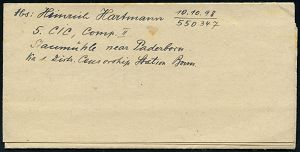 Abs: Heinrich Hartmann 10.10.98
550347
5. CIC, Comp. II
Staumühle near Paderborn
Via 1 Distr. Censorship Station Bonn